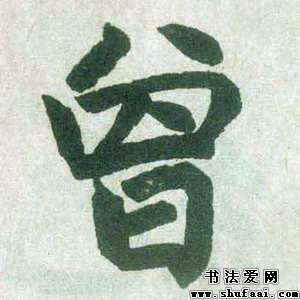 曾
书法爱网
www.shufaai.com